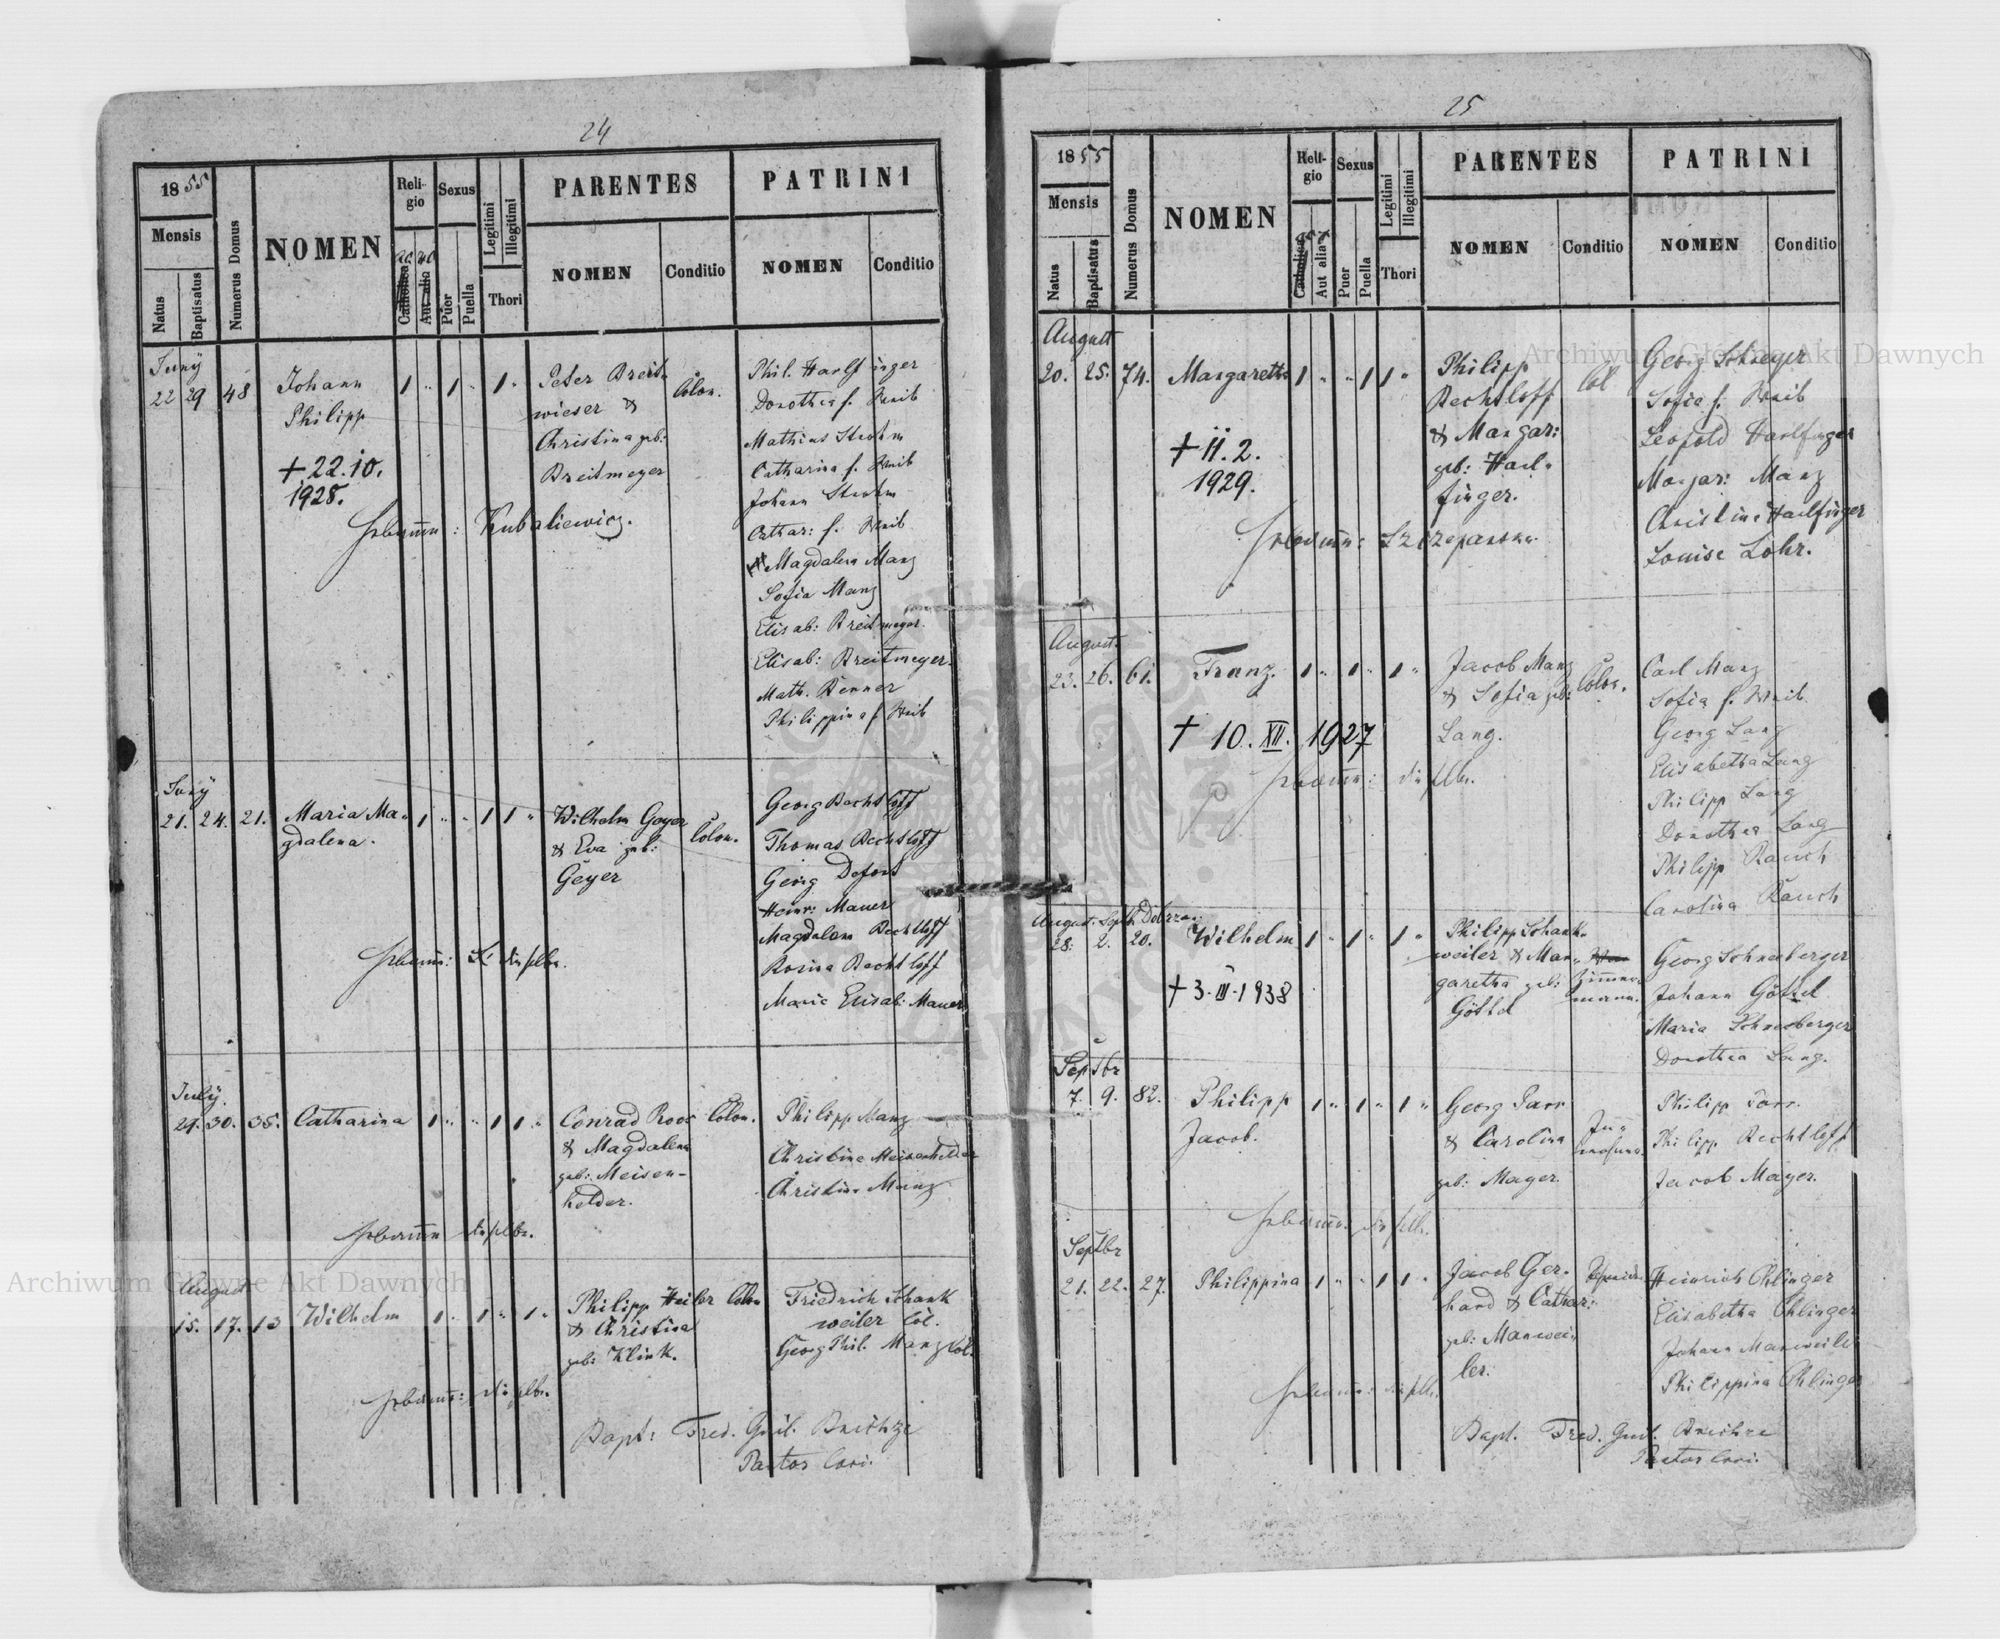 24
1855
Mensis
Natus
Baptisatus
Numerus Domus
NOMEN
Religio
Catholica
Aut alia
Sexus
Puer
Puella
Legitimi
Illegitimi
Thori
PARENTES
NOMEN
Conditio
PATRINI
NOMEN
Conditio
Juny
22 29 48 Johann
Philipp
+ 22.10.
1928.
1 " 1 " 1 "
Peter Breit-
wieser &
Christina geb:
Breitmeyer
Colon.
Phil. Harlfinger
Dorothea s. Weib
Mathias Strohm
Catharina s. Weib
Johann Strohm
Cathar: s. Weib
Magdalena Manz
Sofia Manz
Elisab: Breitmeyer.
Elisab: Breitmeyer.
Math. Benner
Philippina s. Weib
Hebamm: Kubaliewicz.
Juny
21. 24. 21. Maria Ma-
gdalena.
1 " " 1 1 "
Wilhelm Geyer
& Eva geb:
Geyer
Colon.
Georg Bechtloff
Thomas Bechtloff
Georg
Heinr: Mauer
Magdalena Bechtloff
Rosina Bechtloff
Maria Elisab: Mauer
Hebamm: dieselbe.
July.
29. 30. 35. Catharina
1 " " 1 1 "
Conrad Roos
& Magdalena
geb: Meisen-
helder.
Colon.
Philipp Manz
Christina Meisenhelder
Christina Manz
Hebamm dieselbe.
August
15. 17. 13 Wilhelm
1 " 1 " 1 "
Philipp Heiler
& Christina
geb: Klink.
Colon
Friedrich Schank
weiler Col.
Georg Phil. Manz Col.
Hebamm: dieselbe.
Bapt: Fred. Guil.
Pastor loci.
25
1855
Mensis
Natus
Baptisatus
Numerus Domus
NOMEN
Religio
Catholica
Aut alia
Sexus
Puer
Puella
Legitimi
Illegitimi
Thori
PARENTES
NOMEN
Conditio
PATRINI
NOMEN
Conditio
August
20. 25. 74. Margaretha
+ 11. 2.
1929.
1 " " 1 1 "
Philipp
Bechtloff
& Margar:
geb: Harl-
finger.
Col
Georg Schweyer
Sofia s. Weib
Leopold Harlfinger
Margar: Manz
Christina Harlfinger
Louise Lohr.
Hebamm: Szczepanska.
August
23. 26. 61. Franz.
+ 10. XII. 1927
1 " 1 " 1 "
Jacob Manz
& Sofia geb:
Lang.
Colon.
Carl Manz
Sofia s. Weib
Georg Lang
Elisabetha Lang
Philipp Lang
Dorothea Lang
Philipp Rauch
Carolina Rauch
Hebamm: dieselbe.
August. Septb
28. 2. 20. Wilhelm
+ 3. III. 1938
1 " 1 " 1 "
Philipp Schank-
weiler & Mar-
garetha geb:
Göttel
Zimmer-
mann.
Georg Schneeberger
Johann Göttel
Maria Schneeberger
Dorothea Lang.
Septbr
7. 9. 82. Philipp
Jacob.
1 " 1 " 1 "
Georg
& Carolina
geb: Mayer.
Philipp
Philipp Bechtloff
Jacob Mayer.
Hebamm. dieselbe.
Septbr
21. 22. 27. Philippina
1 " " 1 1 "
Jacob Ger-
hard & Cathar:
geb: Manwei-
ler.
Heinrich Ohlinger
Elisabetha Ohlinger
Johann Manweiler
Philippina Ohlinger
Hebamm: dieselbe.
Bapt. Fred. Guil.
Pastor loci.
Archiwum Główne Akt Dawnych
Archiwum Główne Akt Dawnych